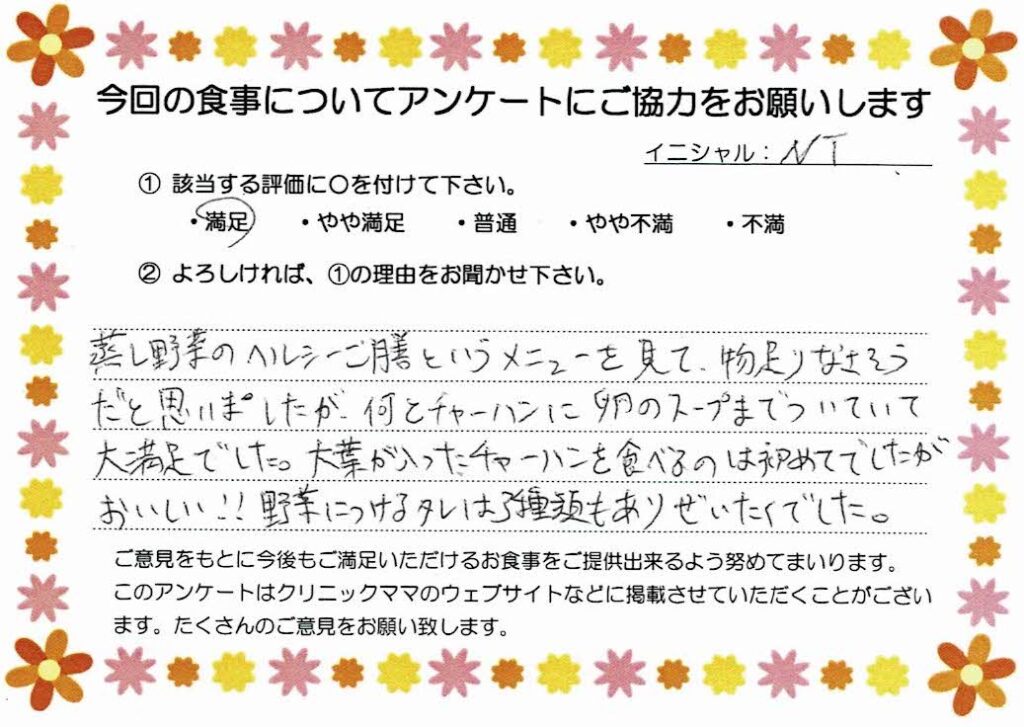 今回の食事についてアンケートにご協力をお願いします
イニシャル：NT
① 該当する評価に〇を付けて下さい。
・満足 ・やや満足 ・普通 ・やや不満 ・不満
② よろしければ、①の理由をお聞かせ下さい。
蒸し野菜のヘルシーご膳というメニューを見て、物足りなさそう
だと思いましたが、何とチャーハンに卵のスープまでついていて
大満足でした。大葉が入ったチャーハンを食べるのは初めてでしたが
おいしい!!野菜につけるタレは3種類もありぜいたくでした。
ご意見をもとに今後もご満足いただけるお食事をご提供出来るよう努めてまいります。
このアンケートはクリニックママのウェブサイトなどに掲載させていただくことがござい
ます。たくさんのご意見をお願い致します。